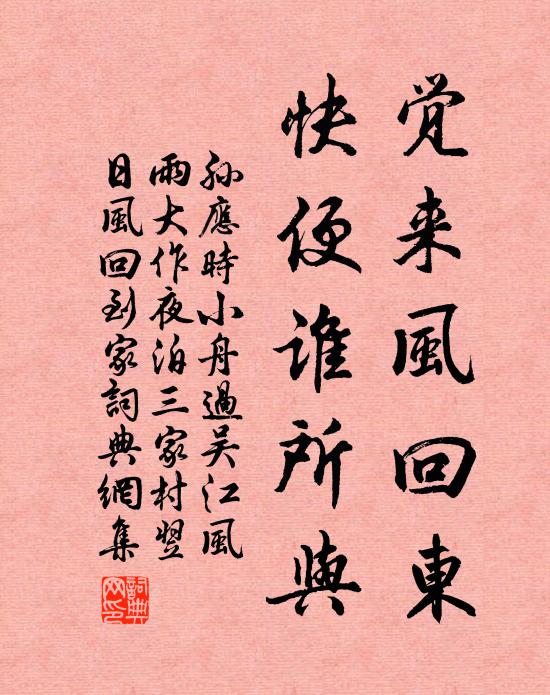 覚来風回東
快便谁所與
孙應時小舟過吴江風
雨大作夜泊三家村翌
日風回到家詞典網集
詞典网印